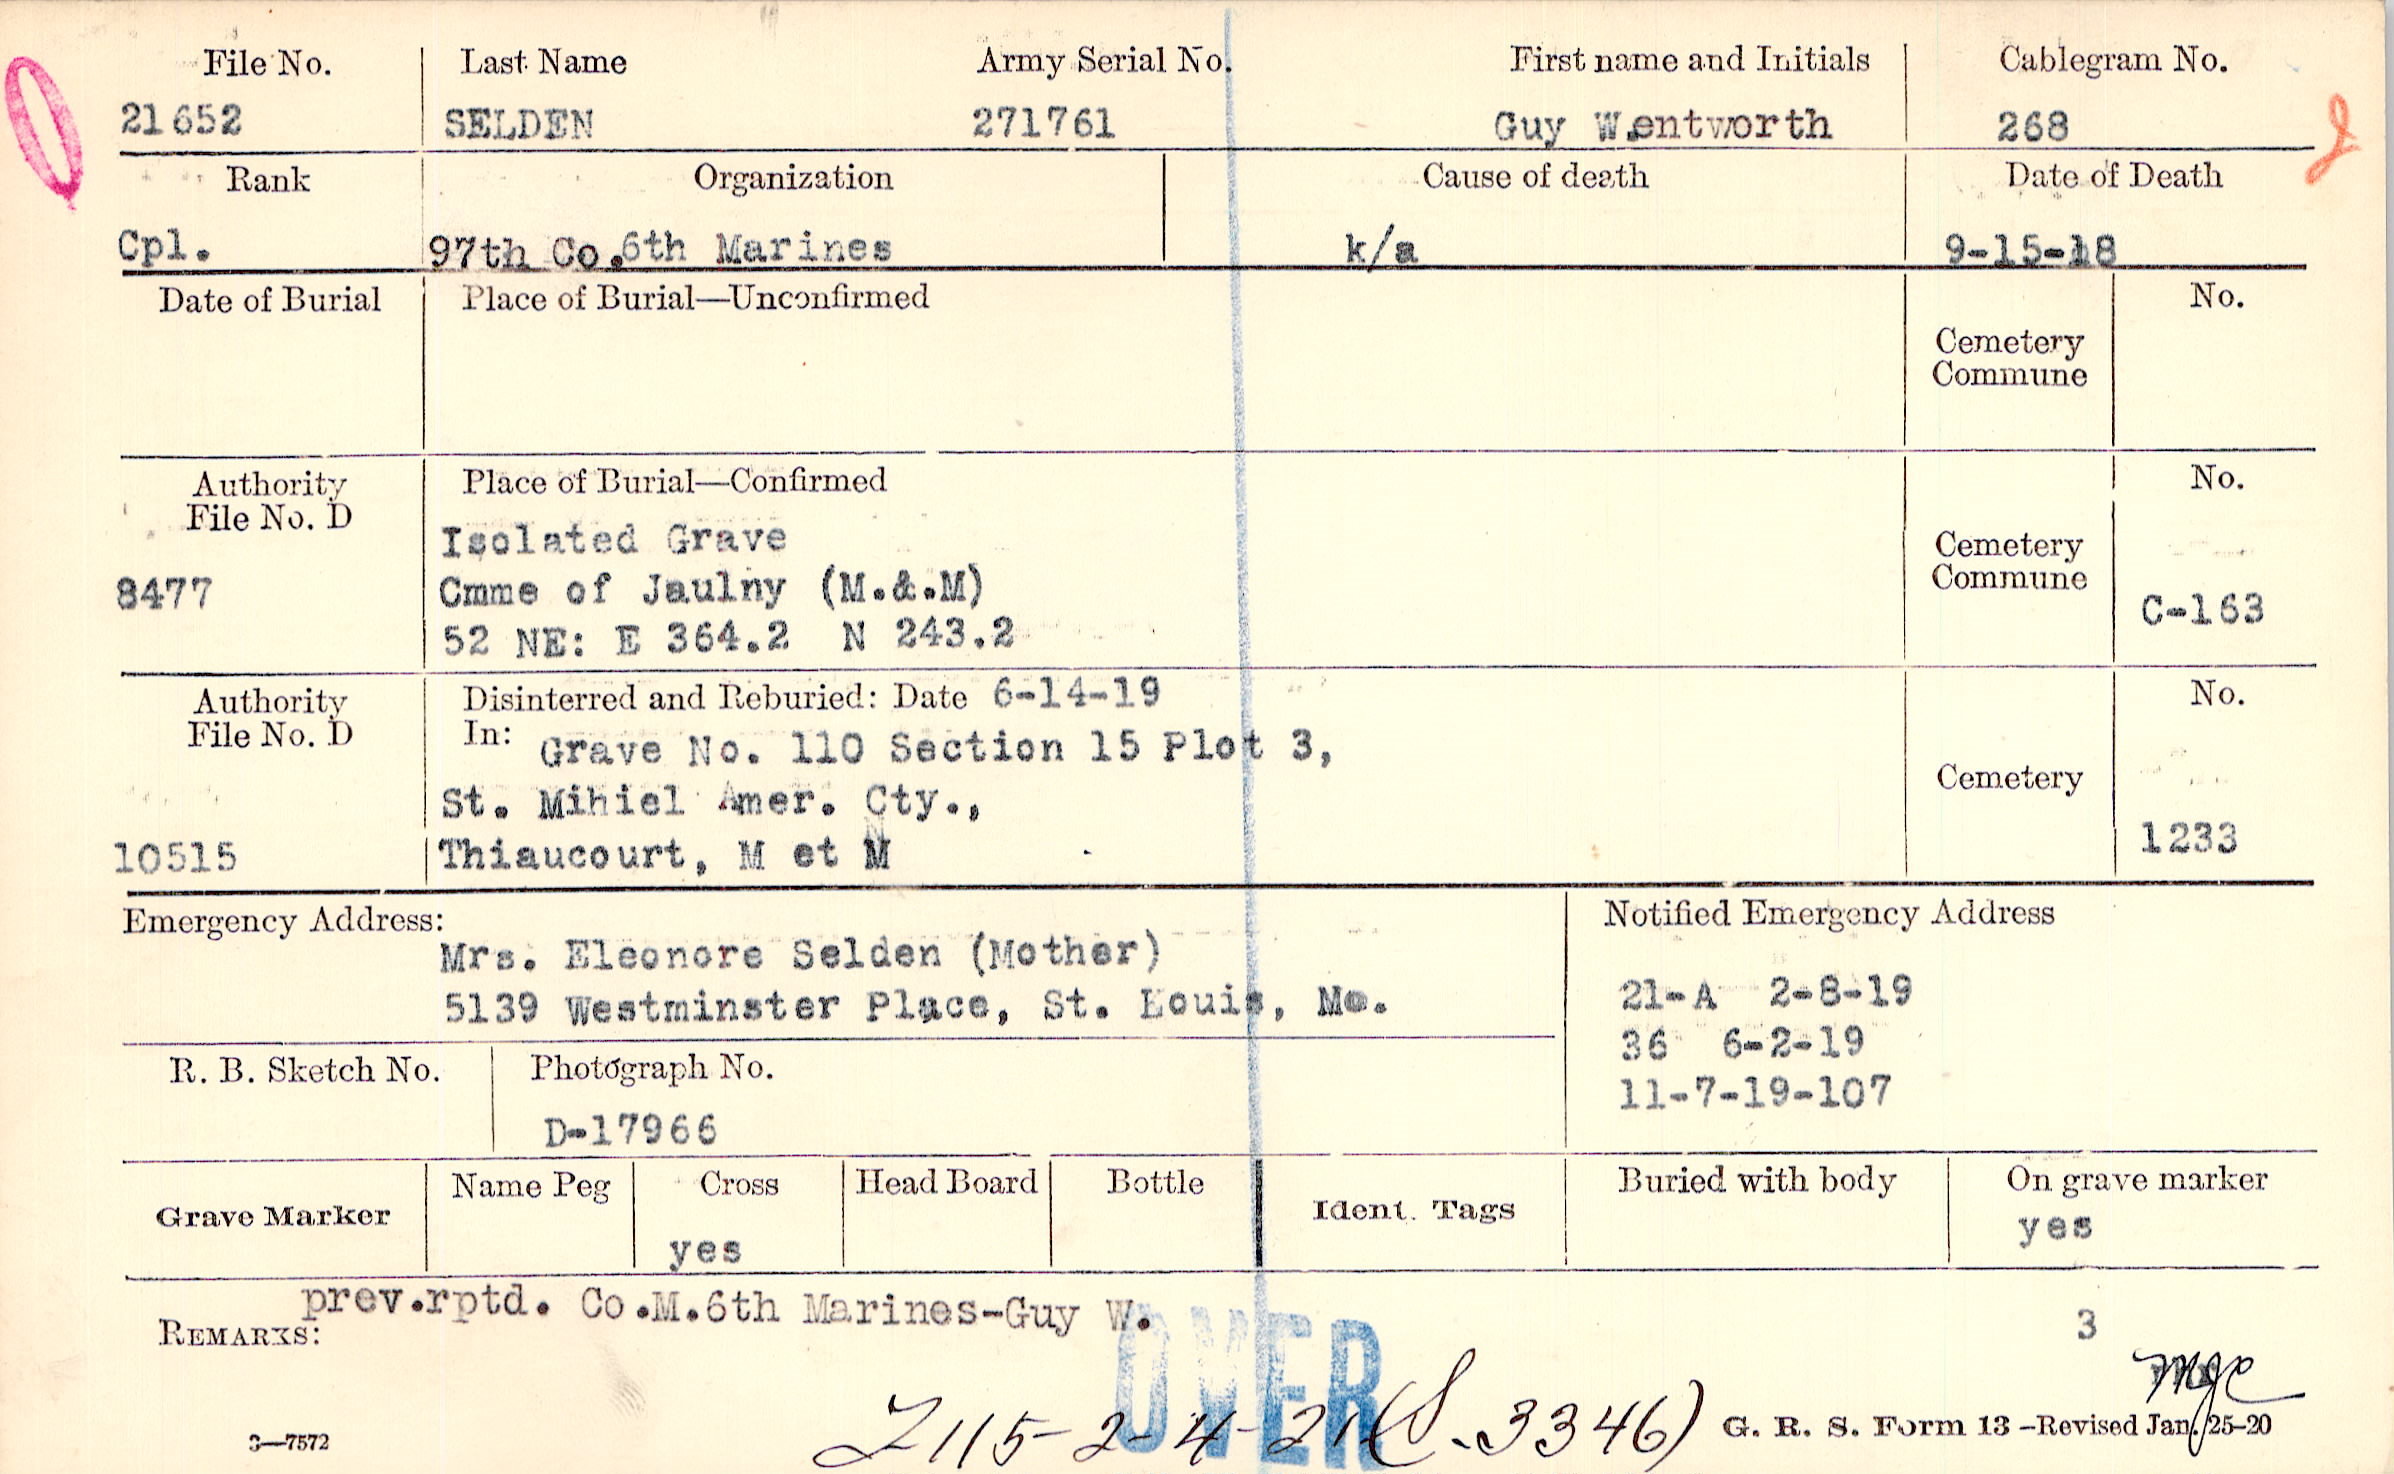 File No. Last Name Army Serial No. First name and Initials Cablegram No.
21652 SELDEN 271761 Guy Wentworth 268
Rank Organization Cause of death Date of Death
Cpl. 97th Co. 6th Marines k/a 9-15-18
Date of Burial Place of Burial—Unconfirmed No.
Cemetery
Commune
Authority Place of Burial—Confirmed No.
File No. D
Isolated Grave
Cemetery
Commune
8477 Cmme of Jaulny (M.&.M)
C-163
52 NE: E 364.2 N 243.2
Authority Disinterred and Reburied: Date 6-14-19 No.
File No. D In: Grave No. 110 Section 15 Plot 3,
Cemetery
St. Mihiel Amer. Cty.,
10515 Thiaucourt, M et M 1233
Emergency Address: Notified Emergency Address
Mrs. Eleonore Selden (Mother)
5139 Westminster Place, St. Louis, Mo.
21-A 2-8-19
36 6-2-19
11-7-19-107
R. B. Sketch No. Photograph No.
D-17966
Grave Marker Name Peg Cross Head Board Bottle Ident. Tags Buried with body On grave marker
yes yes
prev.rptd. Co.M.6th Marines-Guy W.
REMARKS:
3
OVER
mgc
Z115-2-4-21(S.3346)
3—7572 G. R. S. Form 13 -Revised Jan. 25-20